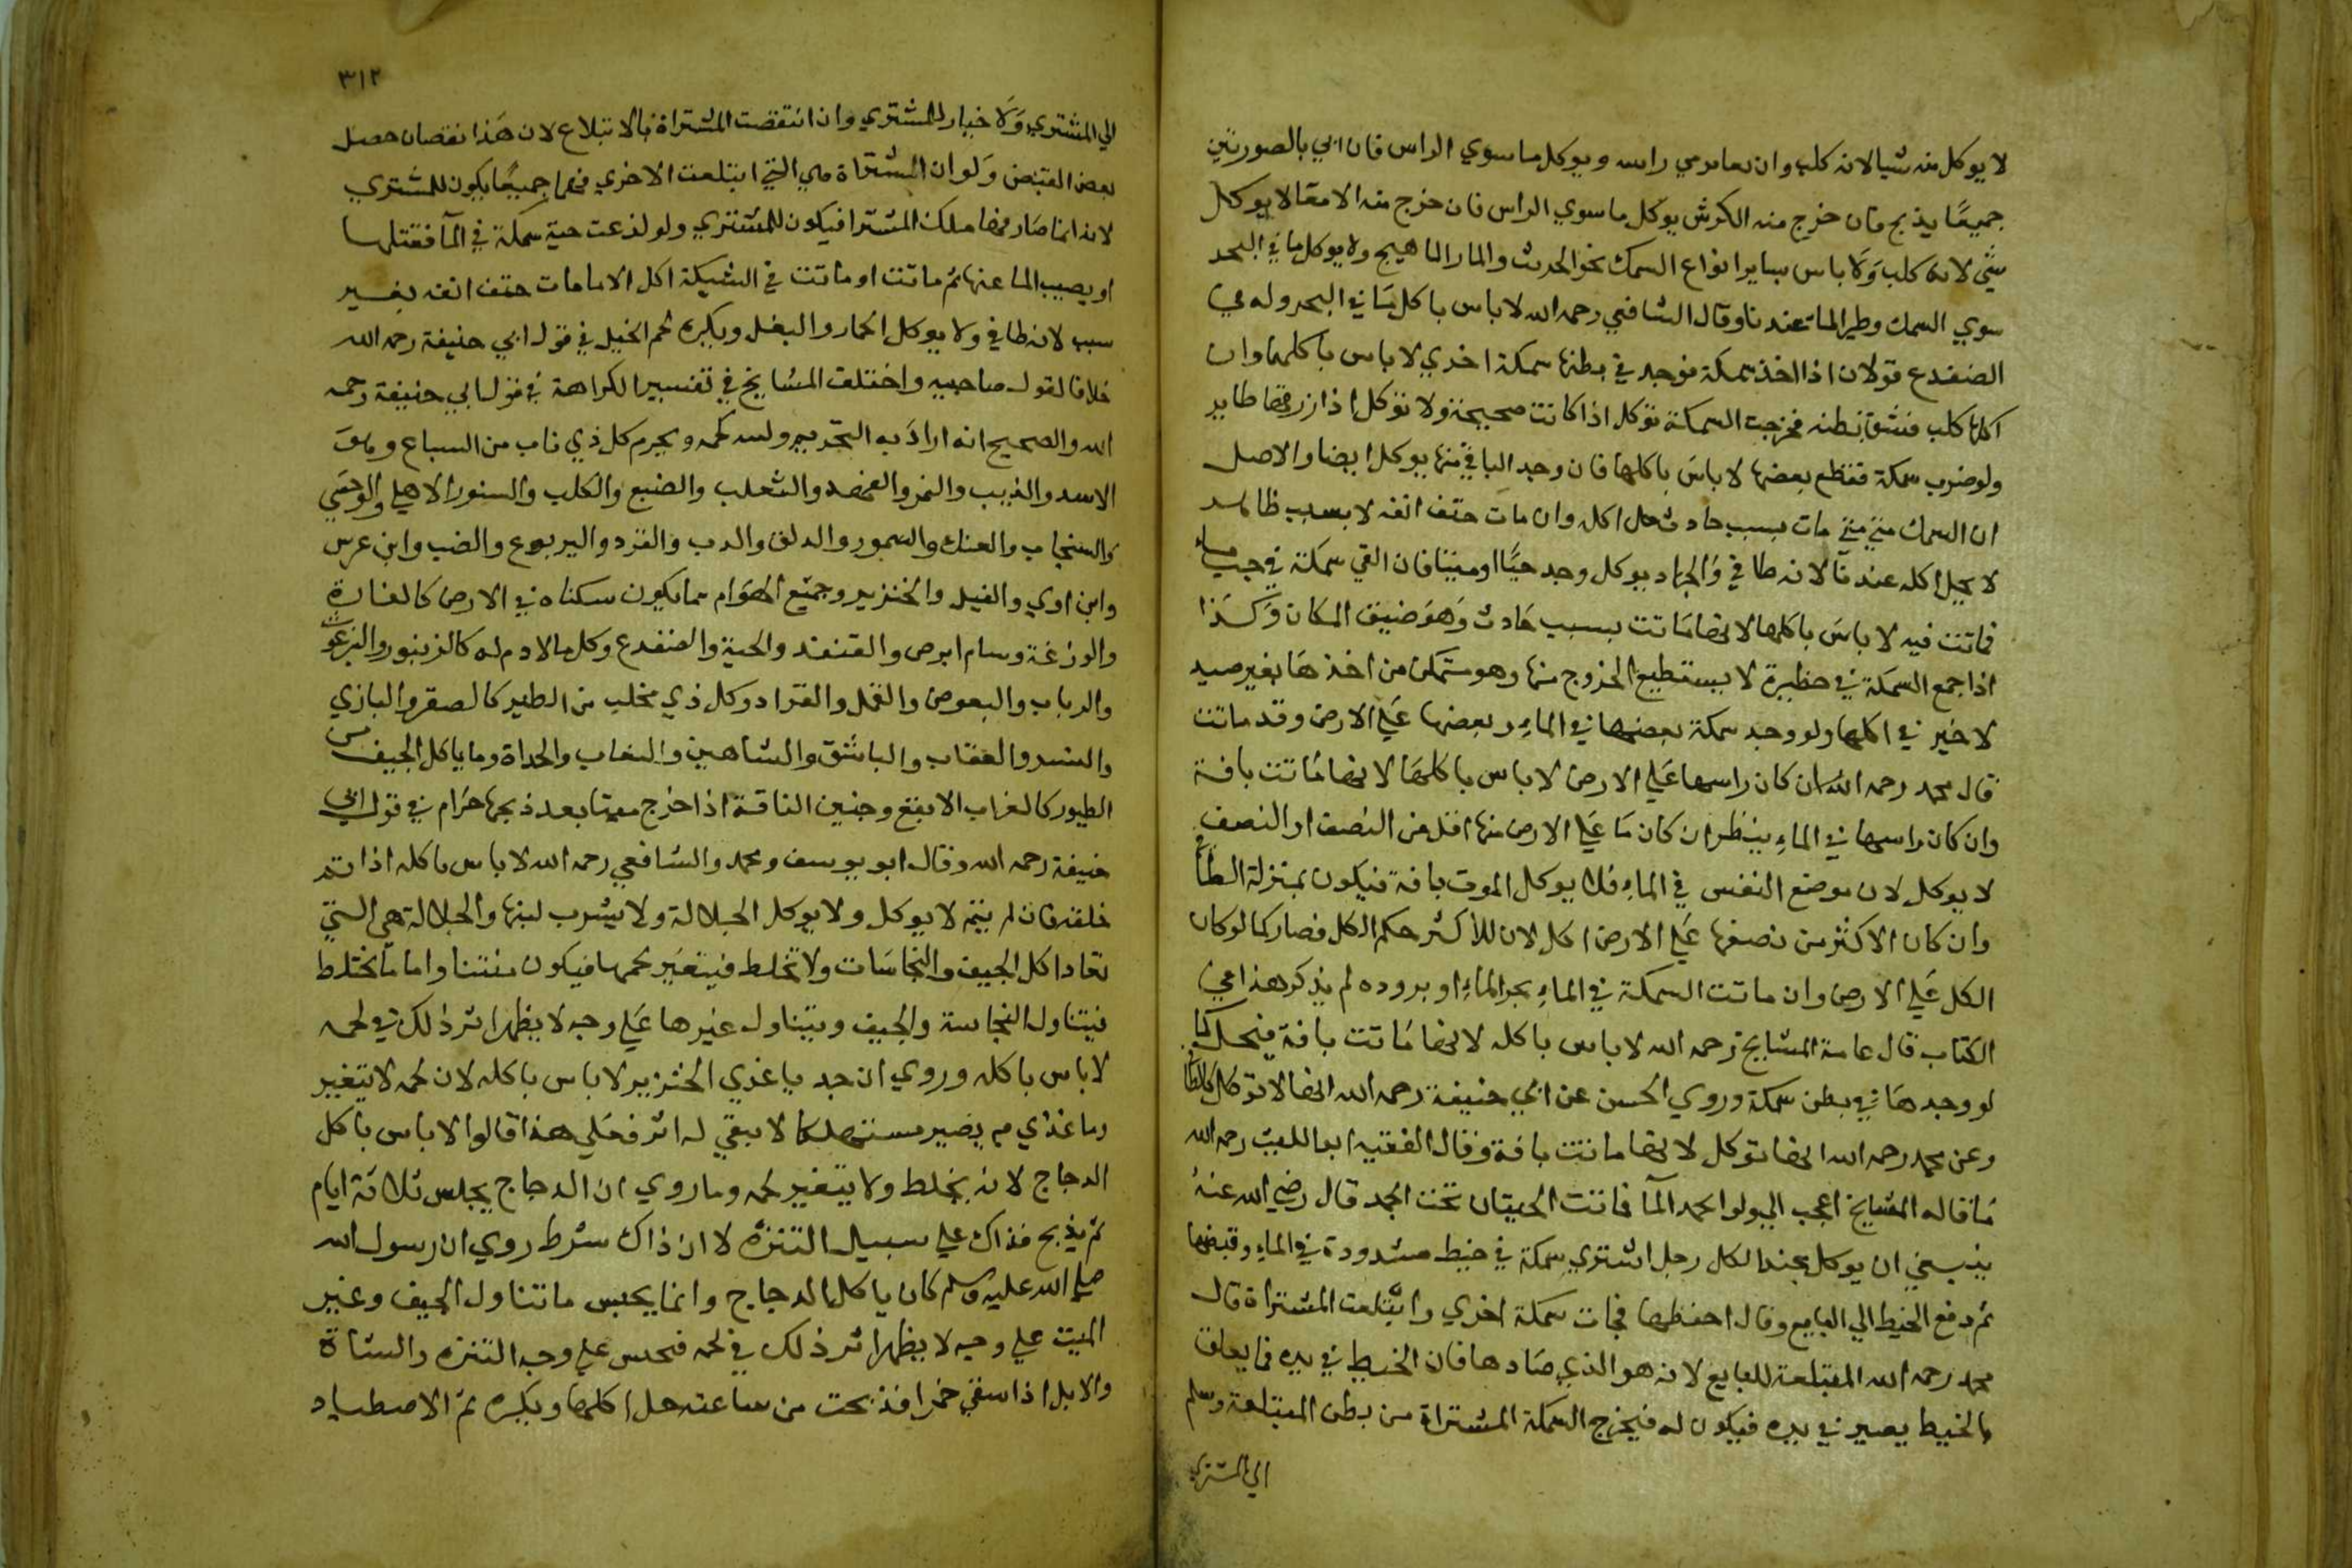 لا يوكل منه شيا لانه كلب وان رمي راسه ويوكل ما سوي الراس فان اتي بالصورتين
جميعًا يذبح فان خرج منه الكرش يوكل ما سوي الراس فان خرج منه الامعا لا يوكل
شي لانه كلب وَلا باس بساير انواع السمك نحو الجريث والمار الماهيج ولا يوكل ما في البحر
سوي السمك وطير الما عندنا وقال الشافعي رحمه الله لا باس باكل مَا في البحر وله في
الضفدع قولان اذا اخذ سمكة فوجد في بطنها سمكة اخري لا باس باكلها وان
اكلها كلب فشق بطنه فخرجت السمكة توكل اذا كانت صحيحة ولا توكل اذا زرقها طاير
ولو ضرب سمكة فقطع بعضها لا باسَ باكلها فان وجد الباقي منها يوكل ايضا والاصل
ان السمك متي مات بسبب حادث حل اكله وان مات حتف انفه لا بسبب ظاهر
لا يحل اكله عندنا لانه طافي وَالجراد يوكل وجد حيًّا او ميتا فان القي سمكة في جب ماء
فماتت فيه لا باسَ باكلها لانها مَاتت بسبب حَادث وَهوَ ضيق المكان وَكَذا
اذا جمع السمكة في حظيرة لا يستطيع الخروج منها وهو متمكن من اخذهَا بغير صيد
لا خير في اكلها ولو وجد سمكة بعضها في الماءِ وبعضها عَلي الارض وقد ماتت
قال محمد رحمه الله ان كان راسها عَلي الارض لا باس باكلهَا لانها مَاتت بافة
وان كان راسها في الماءِ ينظر ان كان مَا عَلي الارض منها اقل من النصف او النصف
لا يوكل لان موضع النفس في الماءِ فلا يوكل الموت بافة فيكون بمنزلة الطافي
وان كان الاكثر من نصفها عَلي الارض اكل لان للاكثر حكم الكل فصار كما لو كان
الكل عَلي الارض وان ماتت السمكة في الماءِ بحر الماءِ او بروده لم يذكر هذا في
الكتاب قال عامة المشايخ رحمه الله لا باس باكله لانها مَاتت بافة فيحل كما
لو وجدهَا في بطن سمكة وروي الحسن عن ابي حنيفة رحمه الله انها لا توكل كالطافي
وعن محمد رحمه الله انها توكل لانها ماتت بافة وقال الفقيه ابو الليث رحمه الله
مَا قاله المشايخ اعجب الي ولو انجمد المآ فماتت الحيتان تحت الجمد قال رضي الله عنهُ
ينبغي ان يوكل عند الكل رجل اشتري سمكة في خيط مشدودة في الماءِ وقبضها
ثم دفع الخيط الي البايع وقال احفظها فجات سمكة اخري وابتلعت المشتراة قال
محمد رحمه الله المبتلعة للبايع لانه هو الذي صَادها فان الخيط في يده فما يعلق
بالخيط يصير في يده فيكون له فيخرج السمكة المشتراة من بطن المبتلعة وسلم
الي المشتري
٣١٢
الي المشتري وَلا خيار للمشتري وان انتقضت المشتراة بالابتلاع لان هَذا نقصان حصل
بعد القبض وَلو ان المشتراة هي التي ابتلعت الاخري فهما جميعًا يكون للمشتري
لانه انما صَاد فهما ملك المشترا فيكون للمشتري ولو لذعت حية سمكة في المآ فقتلها
او يصيب الما عنها ثم ماتت او ماتت في الشبكة اكل الا ما مات حتف انفه بغير
سبب لانه طافي ولا يوكل الحمار والبغل ويكره لحم الخيل في قول ابي حنيفة رحمه الله
خلافا لقول صاحبيه واختلف المشايخ في تفسير الكراهة في قول ابي حنيفة رحمه
الله والصحيح انه ارادَ به التحريم ولبنه كلحمه ويحرم كل ذي ناب من السباع وهوَ
الاسد والذيب والنمر والفهد والثعلب والضبع والكلب والسنور الاهلي والوحشي
والسنجاب والفنك والسمور والدلق والدب والقرد واليربوع والضب وابن عرس
وابن اوي والفيل والخنزير وجميع الهوَام مما يكون سكناه في الارض كالفارة
والوزغة وسام ابرص والقنفد والحية والضفدع وكل ما لا دم له كالزنبور والبرغوث
والدباب والبعوض والقمل والقراد وكل ذي مخلب من الطير كالصقر والبازي
والنسر والعقاب والباشق والشاهين والنعاب والحداة وما ياكل الجيف من
الطيور كالغراب الابقع وجنين الناقة اذا خرج ميتا بعد ذبحها حرَام في قول ابي
حنيفة رحمه الله وقال ابو يوسف ومحمد والشافعي رحمه الله لا باس باكله اذا تم
خلقه فان لم يتم لا يوكل ولا يوكل الجلالة ولا يشرب لبنها والجلالة هي التي
تعادا كل الجيف والنجاسَات ولا تخلط فيتغير لحمها فيكون منتنا واما ما يختلط
فيتناول النجاسة والجيف ويتناول غيرها عَلي وجه لا يظهر اثر ذلك في لحمه
لا باس باكله وروي ان جديا غذي الخنزير لا باس باكله لان لحمه لا يتغير
وما غذي به يصير مستهلكا لا يبقي له اثر فعَلي هذا قالوا لا باس باكل
الدجاج لانه يخلط ولا يتغير لحمه وما روي ان الدجاج يحبس ثلاثة ايام
ثم يذبح فذاك علي سبيل التنزه لا ان ذاك شرط روي ان رسول الله
صلي الله عليه وسلم كان ياكل الدجاج وانما يحبس ما تناول الجيف وغير
الميت علي وجه لا يظهر اثر ذلك في لحمه فحبس علي وجه التنزه والشاة
والابل اذا سقي خمرا فذبحت من ساعته حل اكلها ويكره ثم الاصطياد